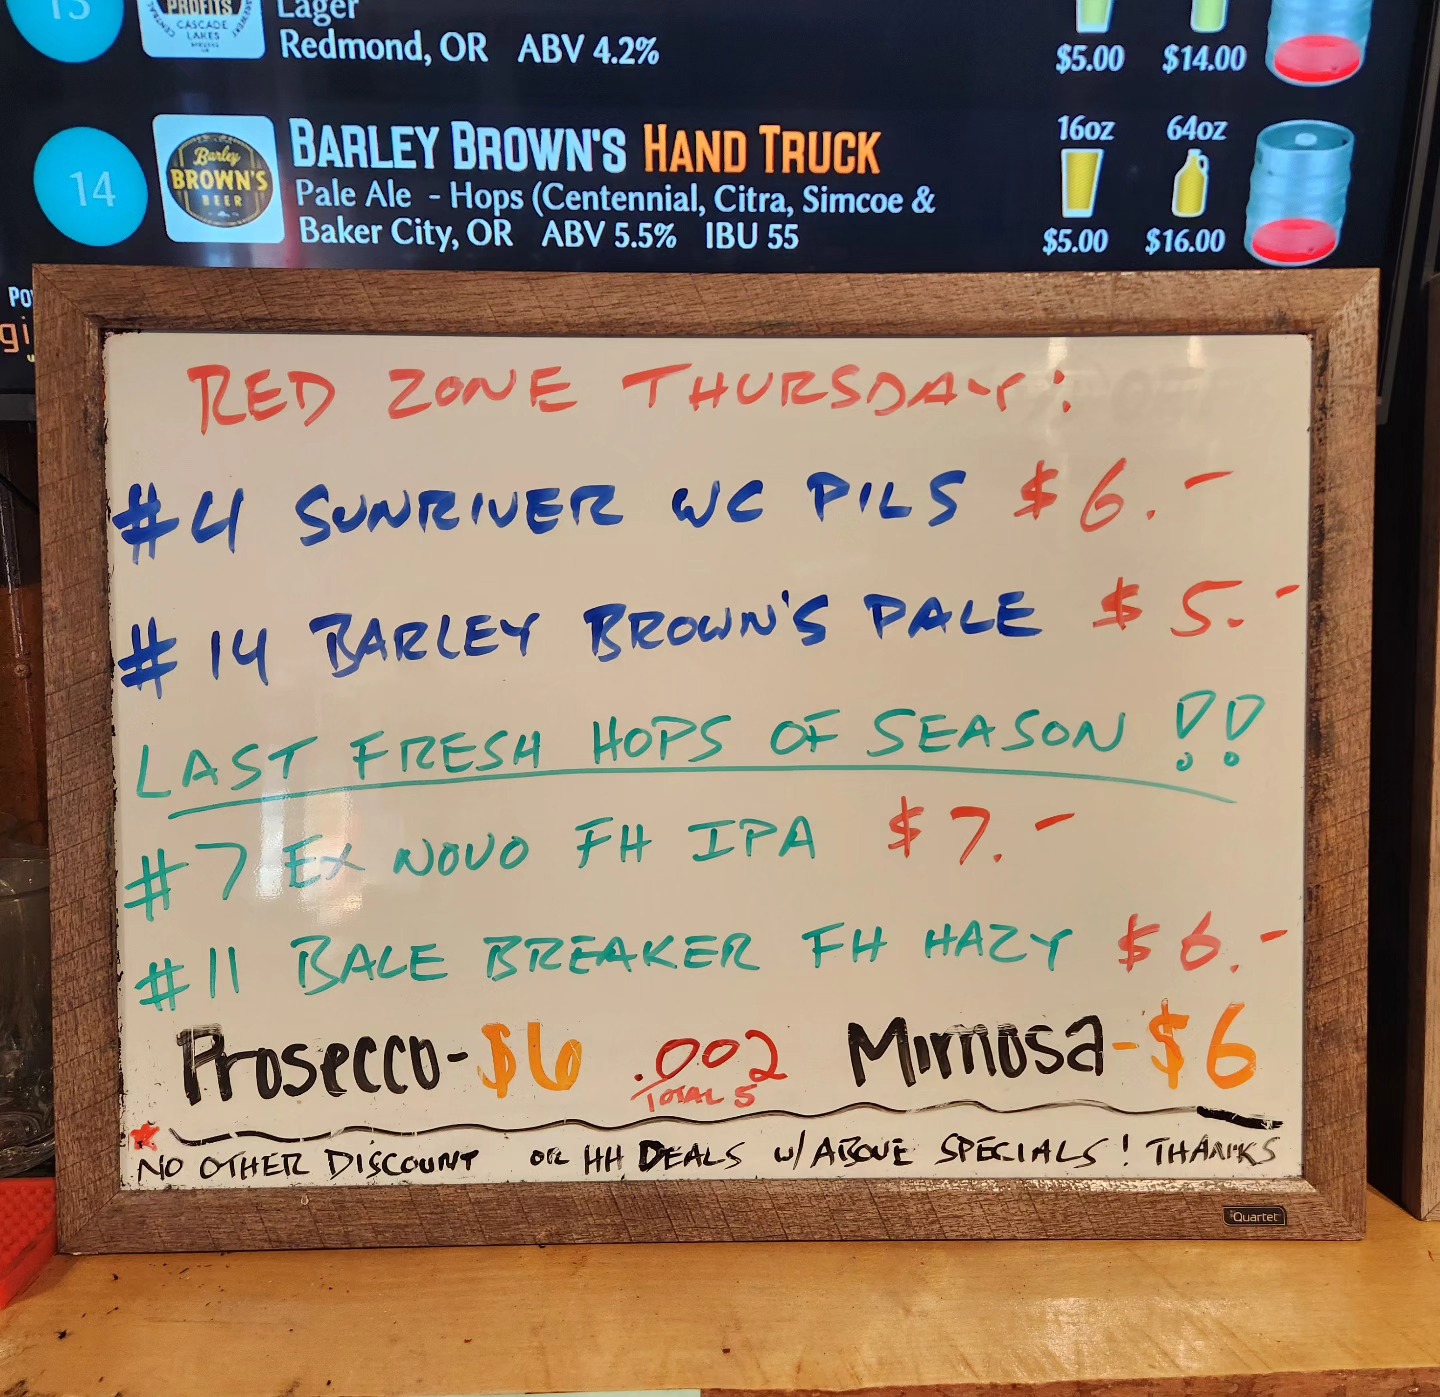 13
PROFITS
CASCADE
LAKES
Lager
Redmond, OR ABV 4.2%
$5.00 $14.00
14
Barley
BROWN'S
BEER
BARLEY BROWN'S HAND TRUCK
Pale Ale - Hops (Centennial, Citra, Simcoe &
Baker City, OR ABV 5.5% IBU 55
16oz 64oz
$5.00 $16.00
RED ZONE THURSDAY:
#4 SUNRIVER WC PILS $6.-
#14 BARLEY BROWN'S PALE $5.-
LAST FRESH HOPS OF SEASON !!
#7 EX NOVO FH IPA $7.-
#11 BALE BREAKER FH HAZY $6.-
Prosecco-$6 .002 Mimosa-$6
TOTAL 5
NO OTHER DISCOUNT OR HH DEALS W/ ABOVE SPECIALS! THANKS
Quartet